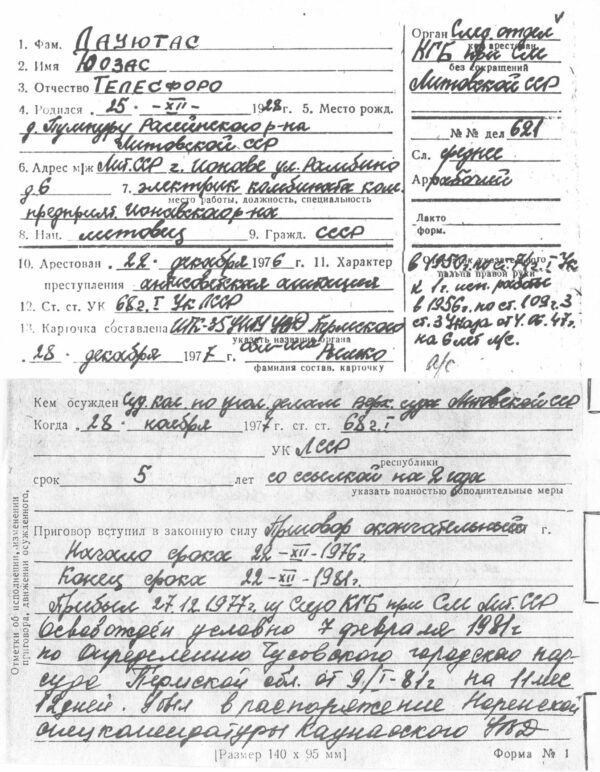 1. Фам. ЛАУЮТАС
2. Имя ЮОЗАС
3. Отчество ТЕЛЕСФОРО
4. Родился 25. -XII- 1928 г. 5. Место рожд.
Расейнского р-на
Литовской ССР
6. Адрес м/ж Лит.ССР г. Ионава ул.
д. 6 7. электрик комбината ком.
место работы, должность, специальность
предприят. Ионавского р-на
8. Нац. литовец 9. Гражд. СССР
Орган След. отдел
кем арестован
КГБ при См
без сокращений
Литовской ССР
№№ дел 621
Сл. среднее
Ар. рабочий
Лакто
форм.
10. Арестован 22. декабря 1976 г. 11. Характер
преступления антисоветская агитация
12. Ст. ст. УК 68 ч. I УК ЛССР
13. Карточка составлена ИТК-35 УВД Пермского
указать название органа
обл-
28. декабря 1977 г.
фамилия состав. карточку
пальца правой руки
в 1950
к 1 г. исп. работ
в 1956г. по ст. 109 ч. 3
ст. 3 Указа от 4.06.47г.
на 6 лет л/с.
л/с
Кем осужден Суд. кол. по угол. делам Верх. суда Литовской ССР
Когда 28. ноября 1977 г. ст. ст. 68 ч. I
УК ЛССР
республики
срок 5 лет со ссылкой на 2 года
указать полностью дополнительные меры
Отметки об исполнении, изменении
приговора, движении осужденного,
Приговор вступил в законную силу Приговор окончательный г.
Начало срока 22-XII-1976г.
Конец срока 22-XII-1981г.
Прибыл 27.12.1977г. из Сизо КГБ при См Лит. ССР
Освобождён условно 7 февраля 1981г
по определению Чусовского городского нар-
суда Пермской обл. от 9/I-81г на 11 мес
12 дней. Убыл в распоряжение
спецкомендатуры Каунасского УВД
[Размер 140 x 95 мм] Форма № 1